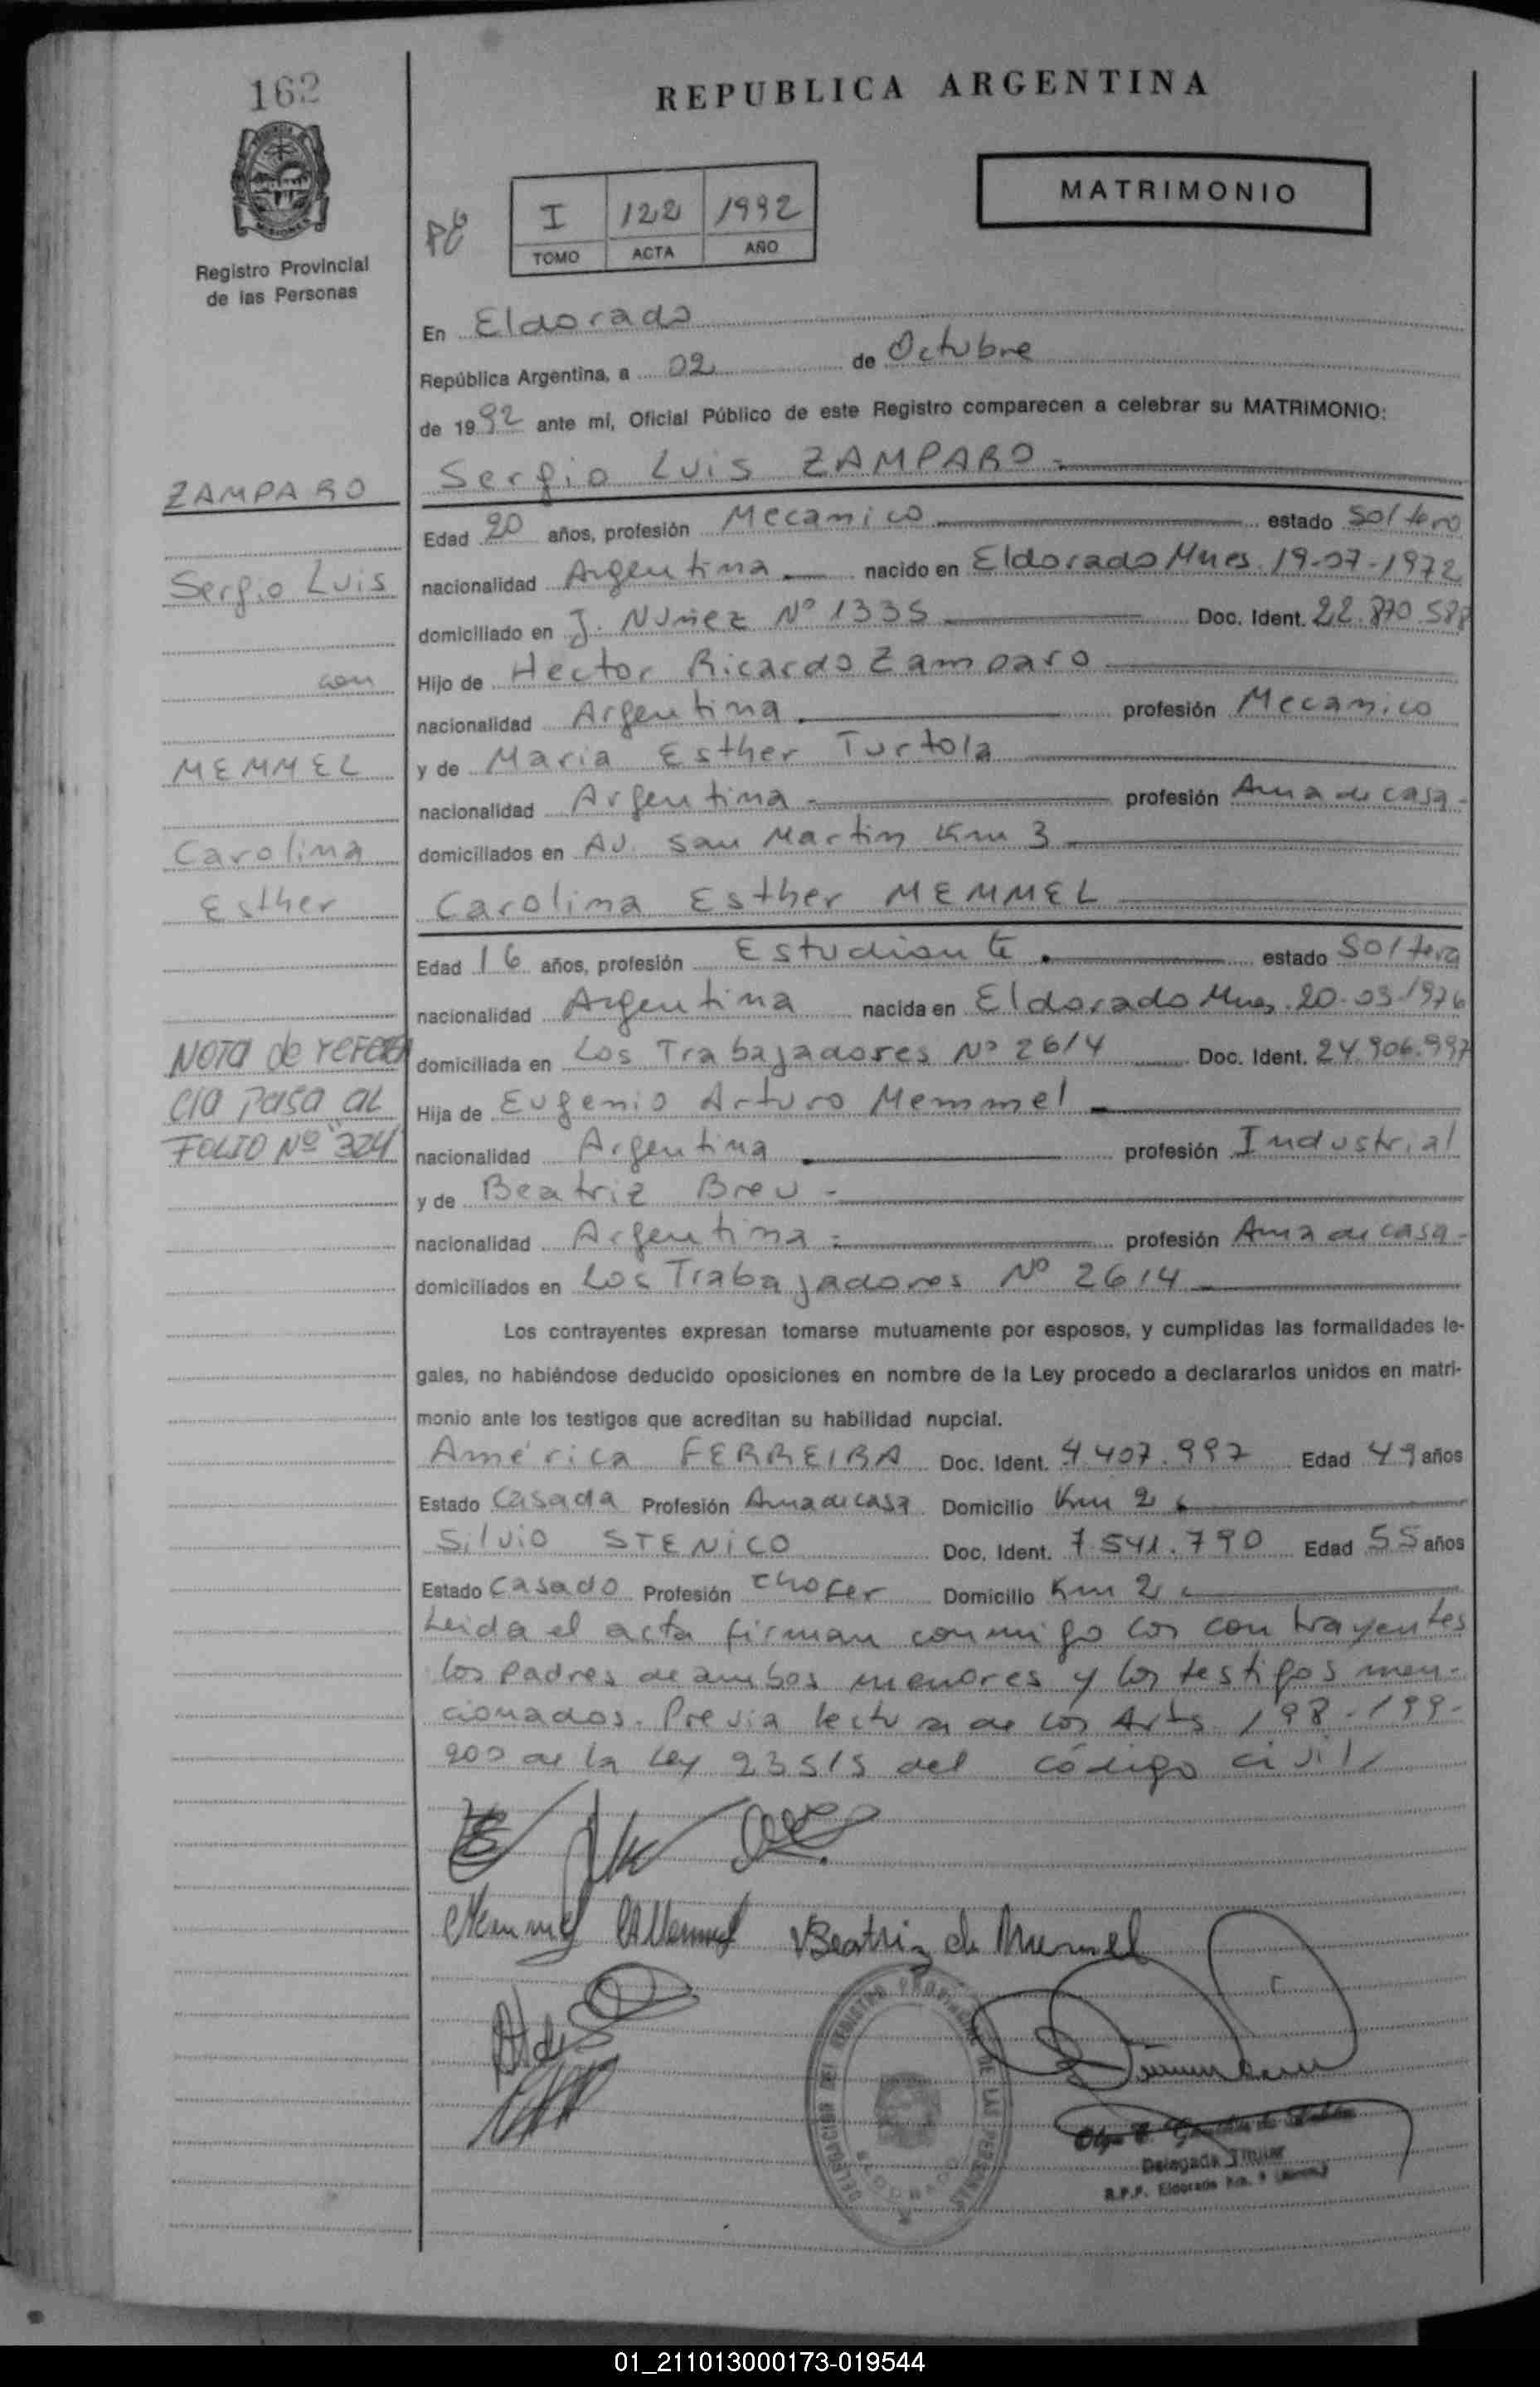 162
REPUBLICA ARGENTINA
MATRIMONIO
I 122 1992
TOMO ACTA AÑO
Registro Provincial
de las Personas
En Eldorado
República Argentina, a 02 de Octubre
de 1992 ante mí, Oficial Público de este Registro comparecen a celebrar su MATRIMONIO:
Sergio Luis ZAMPARO
ZAMPARO
Edad 20 años, profesión Mecanico estado Soltero
Sergio Luis
nacionalidad Argentina nacido en Eldorado Mnes. 19-07-1972
domiciliado en J. Nuñez Nº 1335 Doc. Ident. 22.870.588
con
Hijo de Hector Ricardo Zamparo
nacionalidad Argentina profesión Mecanico
MEMMEL
y de Maria Esther Turtola
nacionalidad Argentina profesión Ama de casa
Carolina
domiciliados en Av. San Martin Km 3
Esther
Carolina Esther MEMMEL
Edad 16 años, profesión Estudiante estado Soltera
nacionalidad Argentina nacida en Eldorado Mnes. 20-03-1976
NOTA de referen
domiciliada en Los Trabajadores Nº 2614 Doc. Ident. 24.906.997
cia pasa al
Hija de Eugenio Arturo Memmel
FOLIO Nº 324
nacionalidad Argentina profesión Industrial
y de Beatriz Breu
nacionalidad Argentina profesión Ama de casa
domiciliados en Los Trabajadores Nº 2614
Los contrayentes expresan tomarse mutuamente por esposos, y cumplidas las formalidades le-
gales, no habiéndose deducido oposiciones en nombre de la Ley procedo a declararlos unidos en matri-
monio ante los testigos que acreditan su habilidad nupcial.
América FERREIRA Doc. Ident. 4.407.997 Edad 49 años
Estado Casada Profesión Ama de casa Domicilio Km 2
Silvio STENICO Doc. Ident. 7.541.790 Edad 55 años
Estado Casado Profesión Chofer Domicilio Km 2
Leida el acta firman conmigo los contrayentes
los padres de ambos menores y los testigos men-
cionados. Previa lectura de los Arts. 198-199-
200 de la Ley 23515 del código civil
Memmel Beatriz de Memmel
DELEGACION DEL REGISTRO PROVINCIAL DE LAS PERSONAS
ELDORADO
Delegada Titular
R.P.P. Eldorado Km. 9
01_211013000173-019544